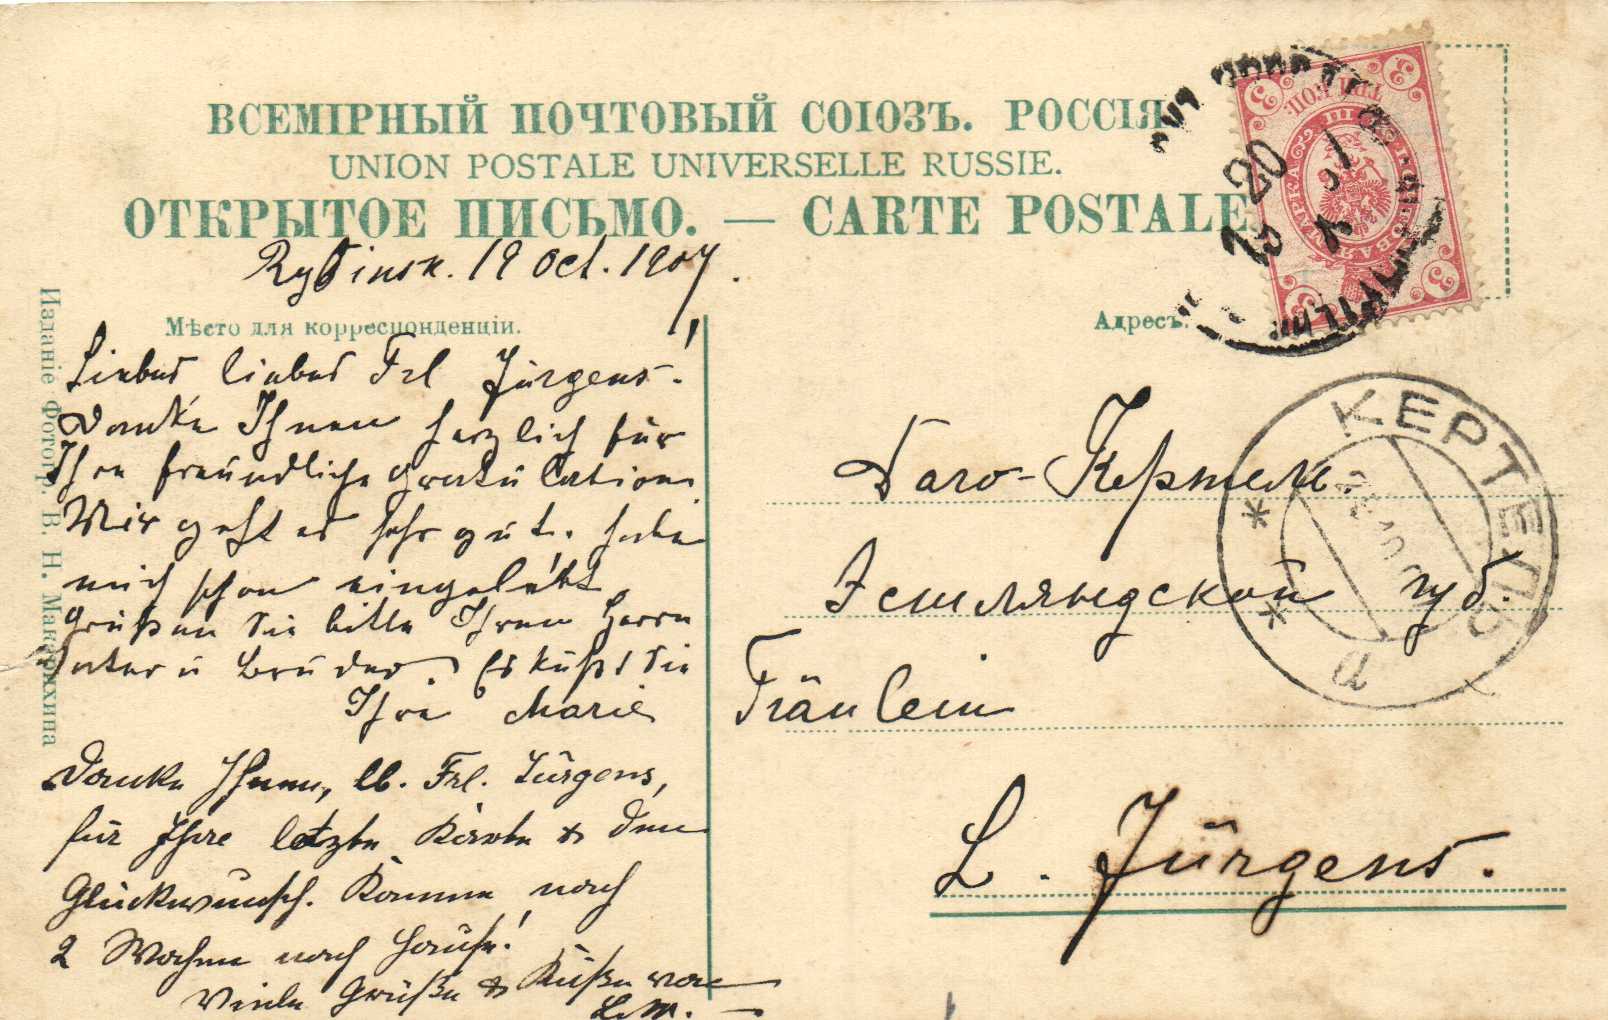 ВСЕМІРНЫЙ ПОЧТОВЫЙ СОЮЗЪ. РОССІЯ
UNION POSTALE UNIVERSELLE RUSSIE.
ОТКРЫТОЕ ПИСЬМО. — CARTE POSTALE.
Rybinsk. 19 Oct. 1907.
Мѣсто для корреспонденціи.
Адресъ.
Изданіе Фотогр. В. Н. Макарихина
Liebes liebes Frl Jürgens!
Danke Ihnen herzlich für
Ihre freundliche Gratulation.
Mir geht es sehr gut. habe
mich schon eingelebt
Grüßen Sie bitte Ihren Herrn
Vater u Bruder. Es küßt Sie
Ihre Marie
Danke Ihnen, lb. Frl. Jürgens,
für Ihre letzte Karte & den
Glückwunsch. Komme nach
2 Wochen nach Hause!
Viele Grüße & Küße von
L. M.
Даго-Кертель.
Эстляндской губ.
Fräulein
L. Jürgens.
КЕРТЕЛЬ
20
3
3
3
3